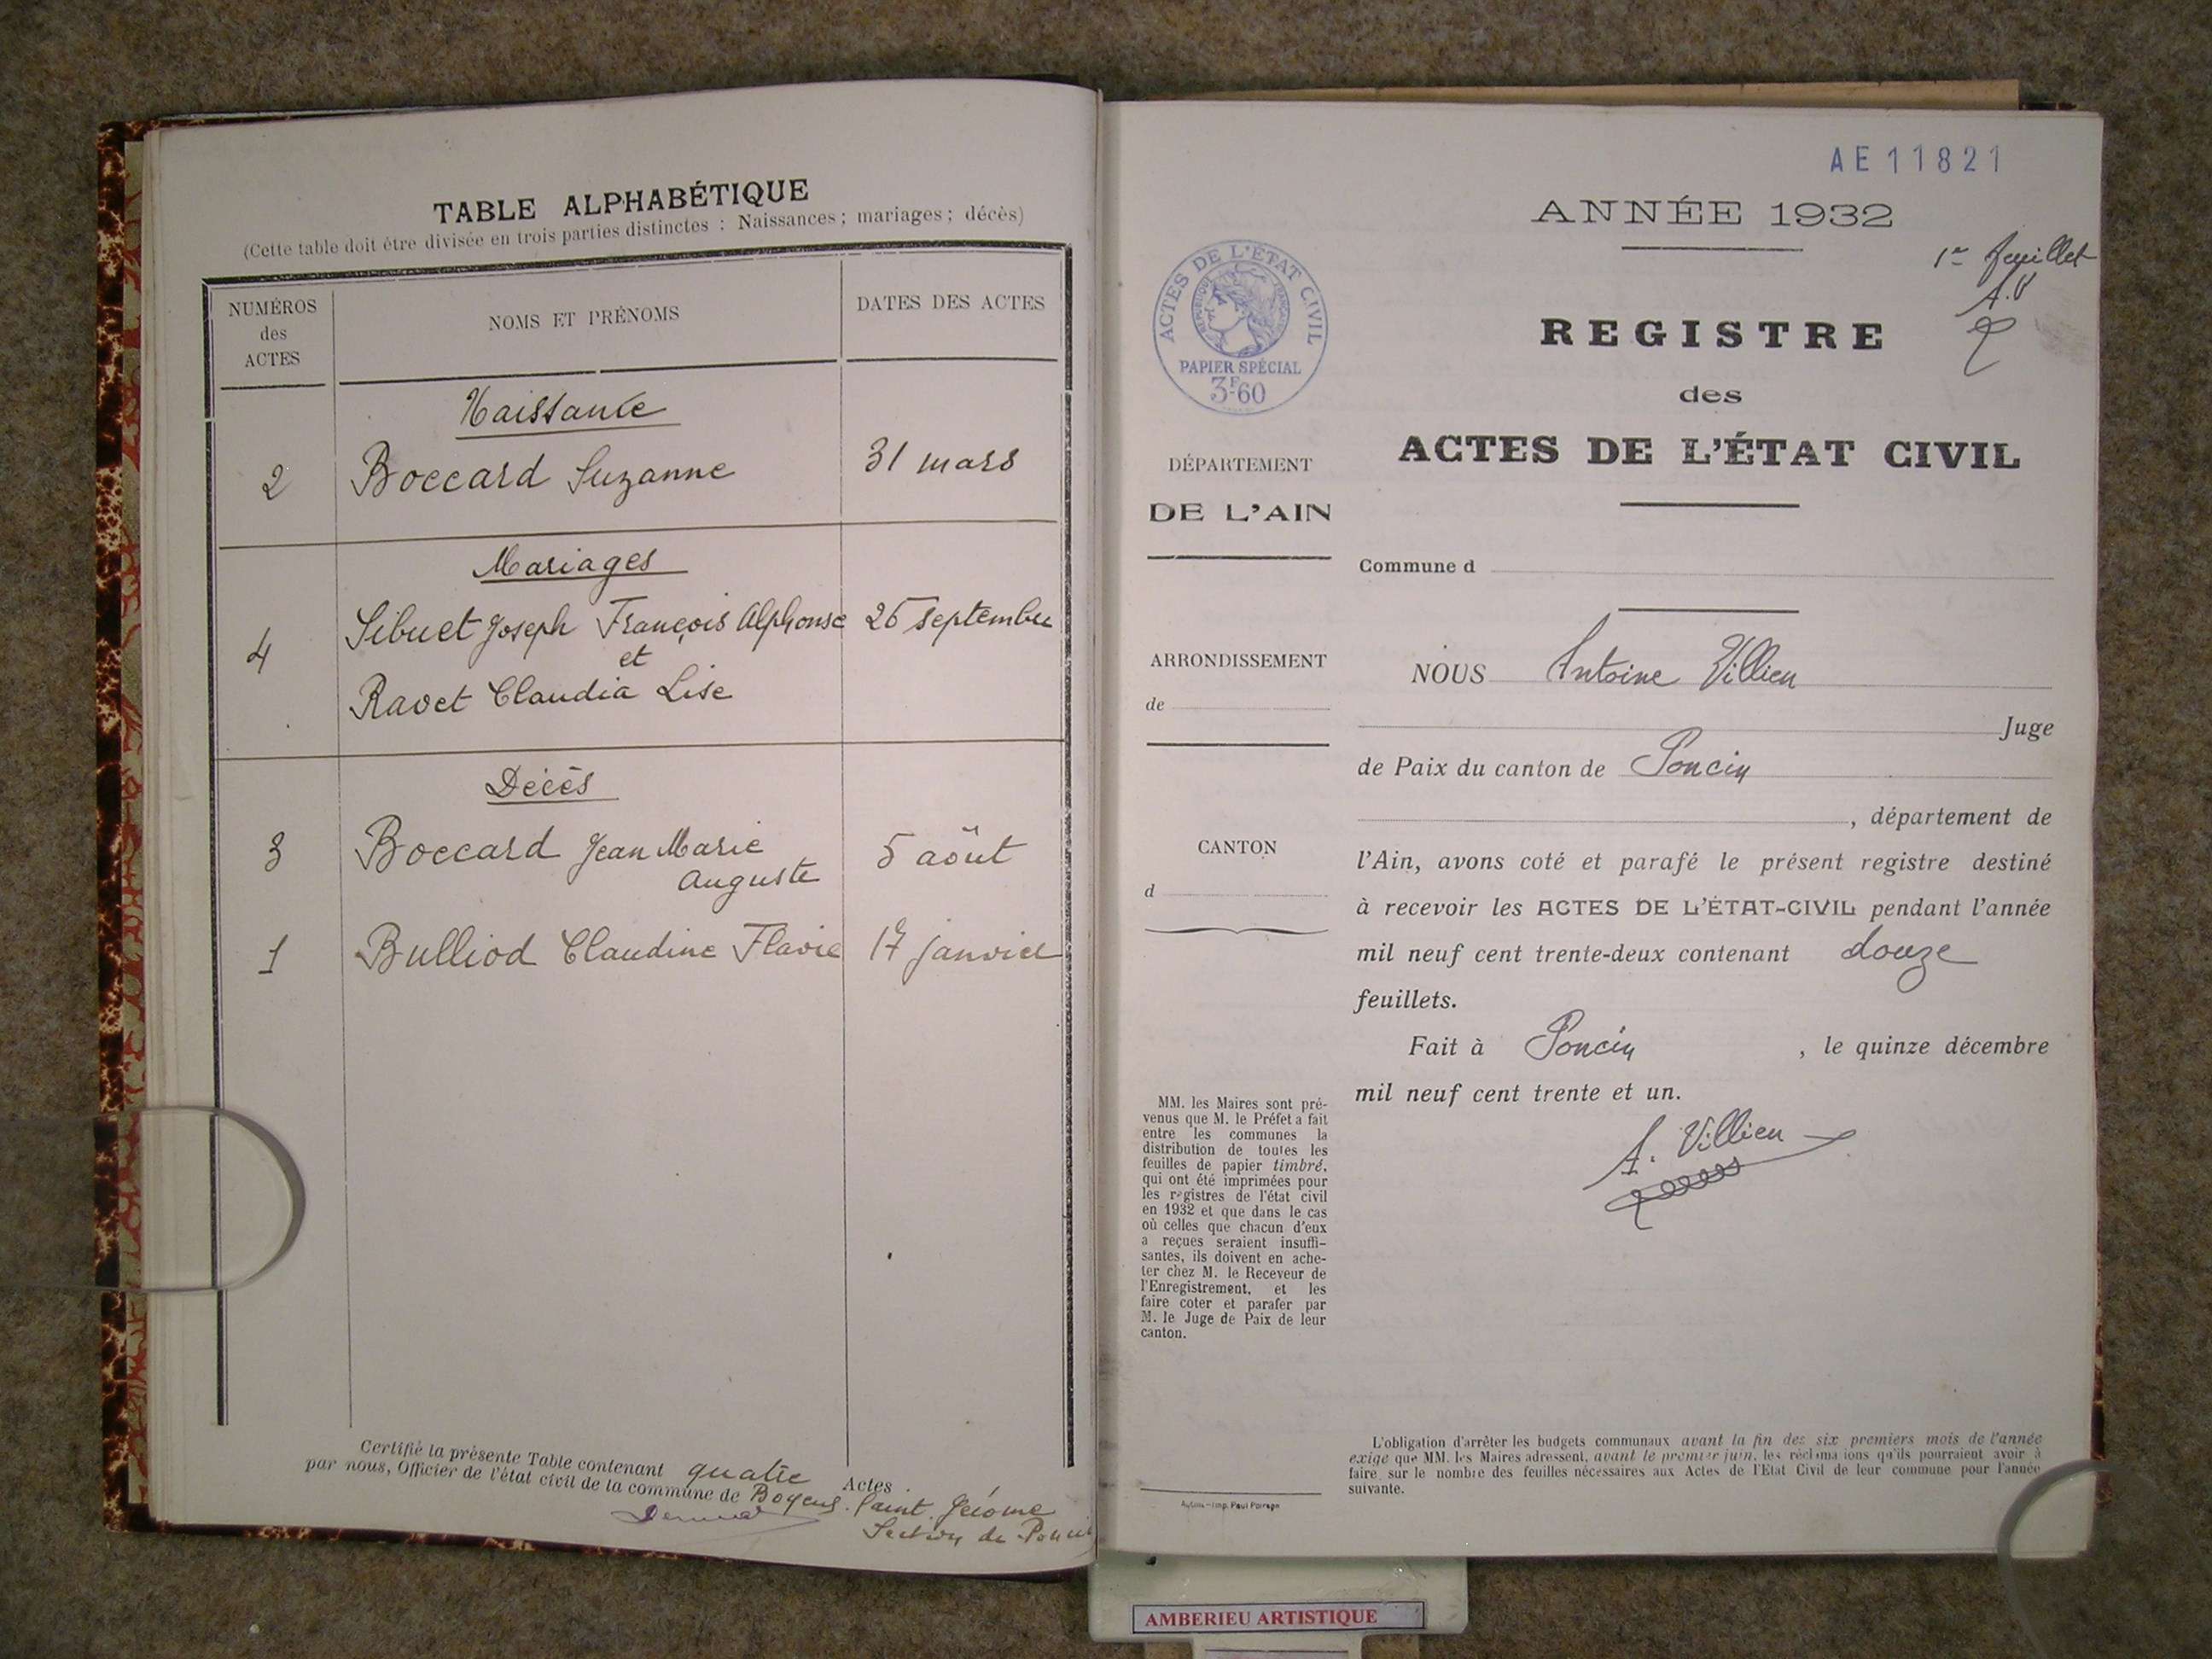 TABLE ALPHABÉTIQUE
(Cette table doit être divisée en trois parties distinctes : Naissances ; mariages ; décès)
NUMÉROS
des
ACTES
NOMS ET PRÉNOMS
DATES DES ACTES
Naissance
2 Boccard Suzanne 31 mars
Mariages
4 Sibuet Joseph François Alphonse 26 septembre
et
Ravet Claudia Lise
Décès
3 Boccard Jean Marie 5 août
Auguste
1 Bulliod Claudine Flavie 17 janvier
Certifié la présente Table contenant quatre Actes
par nous, Officier de l'état civil de la commune de Boyeux Saint Jérome
Section de Poncin
AE11821
ANNÉE 1932
1er feuillet
A.V
REGISTRE
des
ACTES DE L'ÉTAT CIVIL
ACTES DE L'ÉTAT CIVIL
RÉPUBLIQUE FRANÇAISE
PAPIER SPÉCIAL
3F60
DÉPARTEMENT
DE L'AIN
Commune d
ARRONDISSEMENT
de
CANTON
d
NOUS Antoine Villien
Juge
de Paix du canton de Poncin
, département de
l'Ain, avons coté et parafé le présent registre destiné
à recevoir les ACTES DE L'ÉTAT-CIVIL pendant l'année
mil neuf cent trente-deux contenant douze
feuillets.
Fait à Poncin , le quinze décembre
mil neuf cent trente et un.
A. Villien
MM. les Maires sont pré-
venus que M. le Préfet a fait
entre les communes la
distribution de toutes les
feuilles de papier timbré,
qui ont été imprimées pour
les registres de l'état civil
en 1932 et que dans le cas
où celles que chacun d'eux
a reçues seraient insuffi-
santes, ils doivent en ache-
ter chez M. le Receveur de
l'Enregistrement, et les
faire coter et parafer par
M. le Juge de Paix de leur
canton.
L'obligation d'arrêter les budgets communaux avant la fin des six premiers mois de l'année
exige que MM. les Maires adressent, avant le premier juin, les réclamations qu'ils pourraient avoir à
faire sur le nombre des feuilles nécessaires aux Actes de l'Etat Civil de leur commune pour l'année
suivante.
Imp. Paul
AMBERIEU ARTISTIQUE